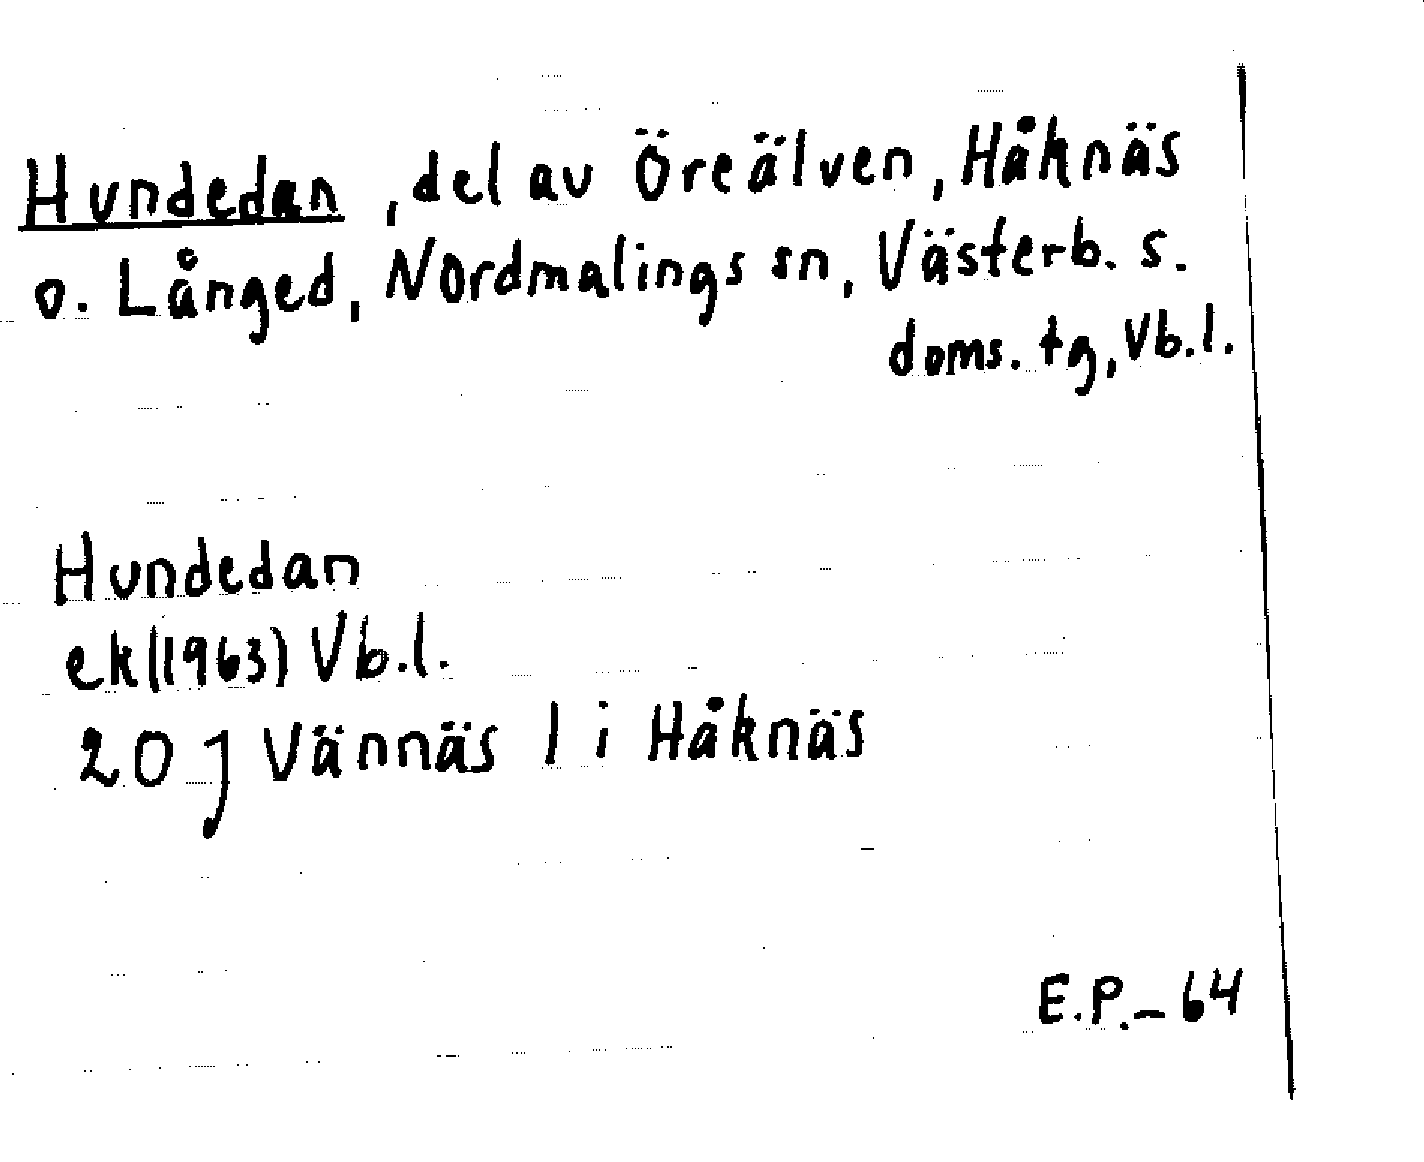 Hundedan, del av Öreälven, Håknäs
o. Långed, Nordmalings sn, Västerb. s.
doms. tg, Vb. l.
Hundedan
ek (1963) Vb. l.
20 J Vännäs l i Håknäs
E.P. - 64